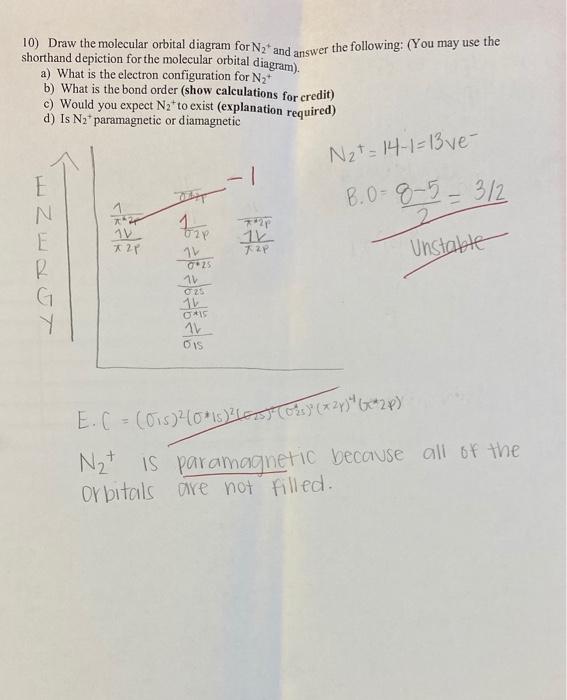 10) Draw the molecular orbital diagram for N₂⁺ and answer the following: (You may use the
shorthand depiction for the molecular orbital diagram).
a) What is the electron configuration for N₂⁺
b) What is the bond order (show calculations for credit)
c) Would you expect N₂⁺ to exist (explanation required)
d) Is N₂⁺ paramagnetic or diamagnetic
N₂⁺ = 14-1=13ve⁻
B.O= 8-5/2 = 3/2
Unstable
ENERGY
-1
σ*2p
1 π*2p
π*2p
1 σ2p
1L π2p
1L π2p
1L σ*2s
1L σ2s
1L σ*1s
1L σ1s
E.C = (σ1s)²(σ*1s)²(σ2s)²(σ*2s)²(π2p)⁴(π*2p)
N₂⁺ is paramagnetic because all of the
orbitals are not filled.